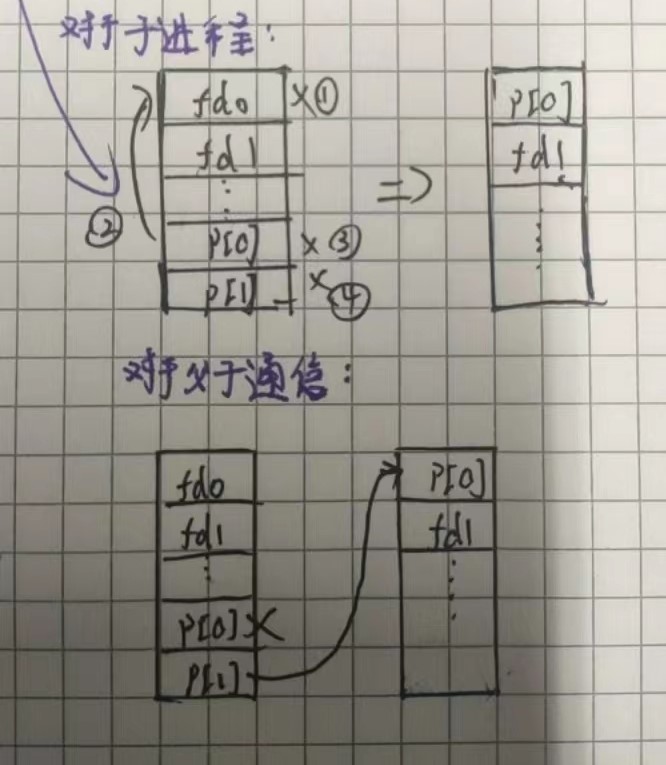 对于子进程：
fd0 ×①
fd1
⋮
② P[0] ×③
P[1] ×④
=>
P[0]
fd1
⋮
对于父子通信：
fd0
fd1
⋮
P[0] ×
P[1]
P[0]
fd1
⋮